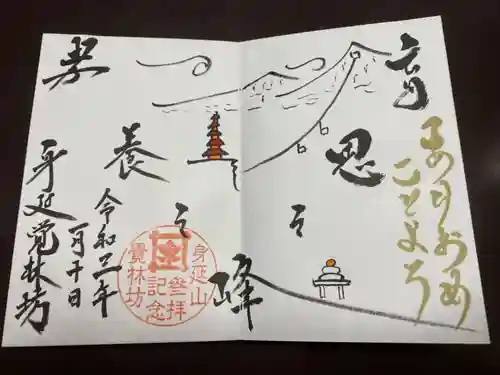 育恩之
峰
あけおめ
ことよろ
孝養之
令和三年
一月十日
身延覚林坊
身延山
参拝
記念
覺林坊